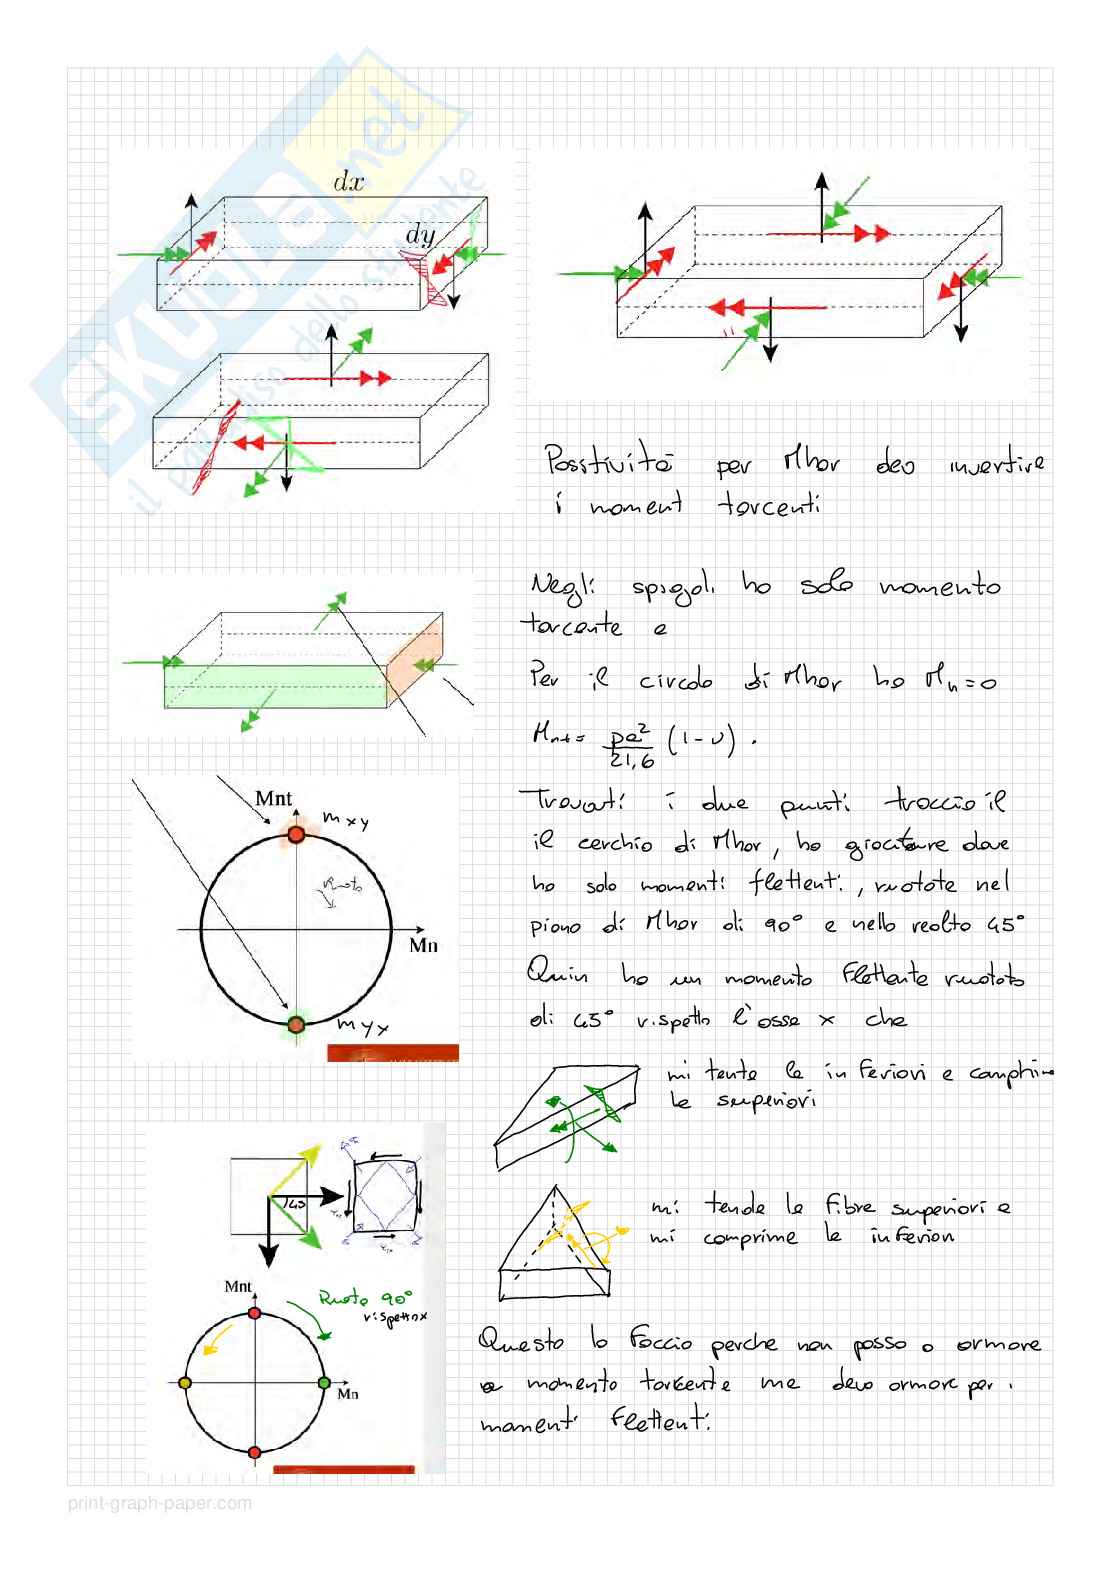 SKUOLA.net
il paradiso dello studente
dx
dy
Positività per Mhor devo invertire
i moment torcenti
Negli spigoli ho solo momento
torcente e
Per il circolo di Mhor ho Mn=0
Mnt = pa²/21,6 (1-υ) .
Trovati i due punti traccio il
il cerchio di Mhor, ho giaciture dove
ho solo momenti flettenti, ruotate nel
piano di Mhor di 90° e nella realtà 45°
Quin ho un momento flettente ruotato
di 45° rispetto l'asse x che
mi tente le inferiori e comprime
le superiori
mi tende le fibre superiori e
mi comprime le inferiori
Questo lo faccio perche non posso o armare
a momento torcente me devo armare per i
momenti flettenti.
Mnt
mxy
Ruoto
Mn
myx
45
Mnt
Ruoto 90°
rispetto x
Mn
print-graph-paper.com